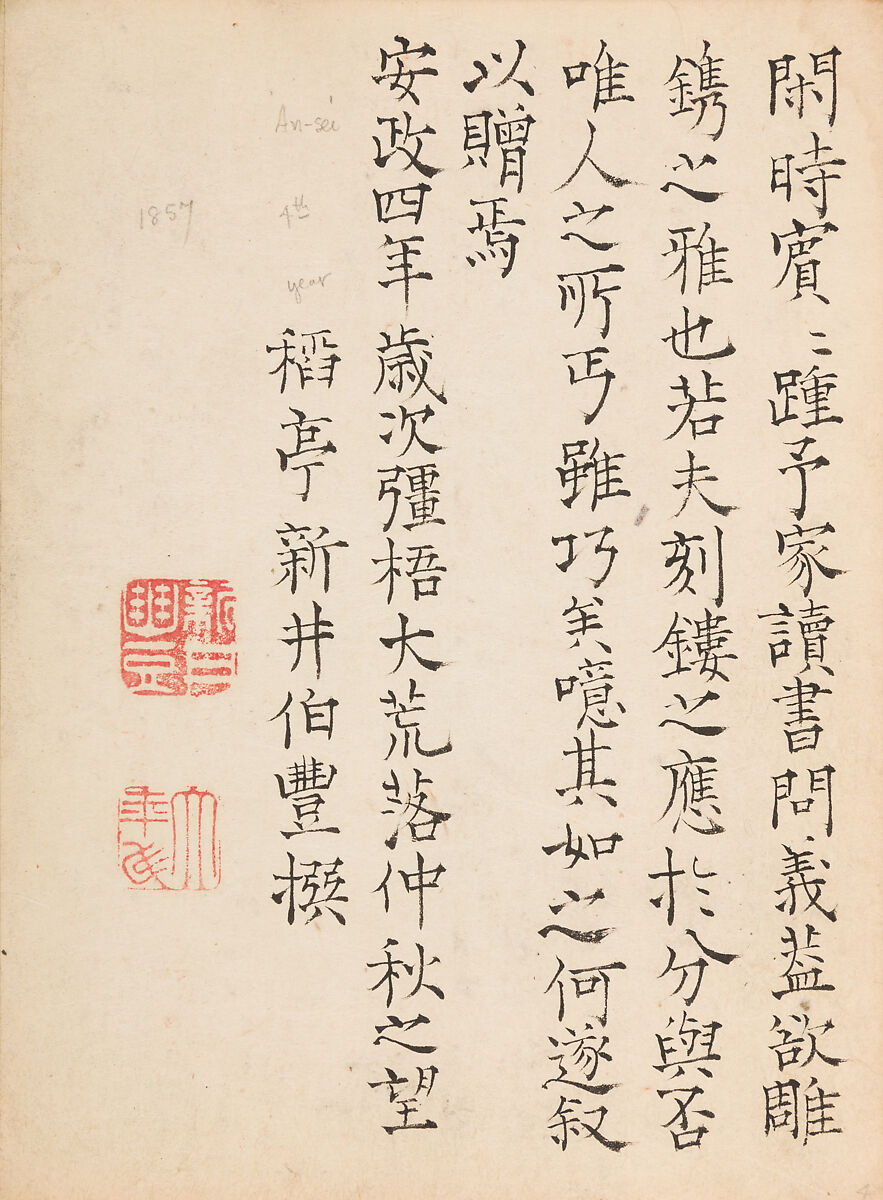 閑時賓〻踵予家讀書問義葢欲雕
鐫之雅也若夫刻鏤之應於分與否
唯人之所丐雖巧矣噫其如之何遂叙
以贈焉
安政四年歲次彊梧大荒落仲秋之望
稻亭新井伯豐撰
An-sei
4th
year
1857